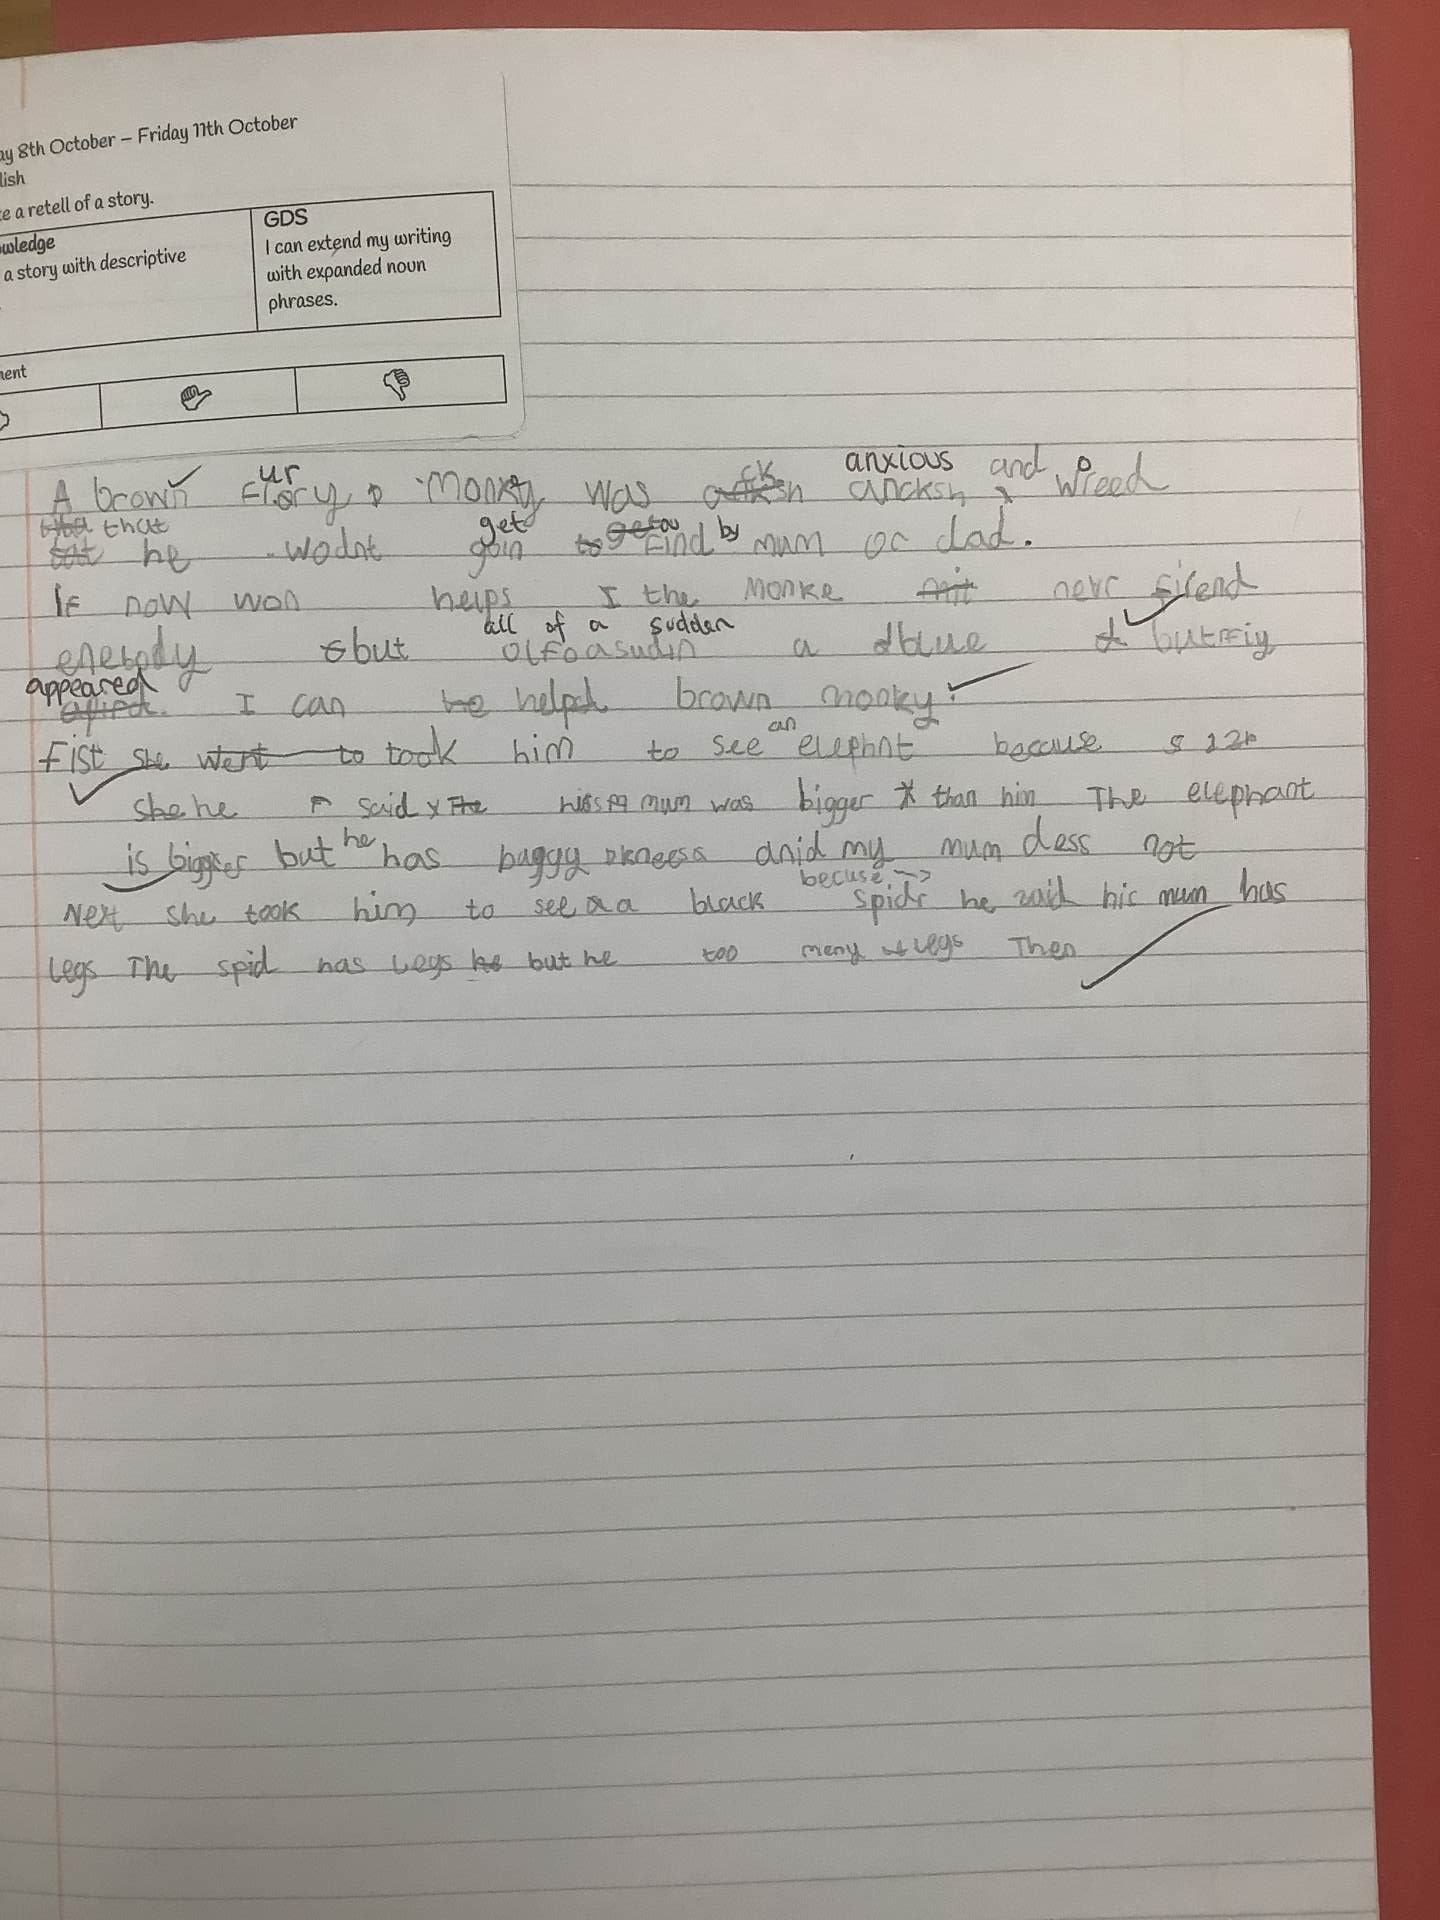 ay 8th October – Friday 11th October
lish
e a retell of a story.
wledge
a story with descriptive
GDS
I can extend my writing
with expanded noun
phrases.
ent
ur anxious and
A brown Flory Monkey was ancksh wreed
that get by
he wodnt goin find mum or dad.
If now won helps I the Monke nevr firend
all of a sudden
enebody but olfoasudin a blue butrfiy
appeared
I can helpd brown mooky.
an
Fist she took him to see elephnt because
she he said mum was bigger than him The elephant
he
is bigger but has baggy kneess anid my mum dess not
becuse
Next she took him to see a black spidr he said his mum has
legs The spid has Legs but he too meny Legs Then